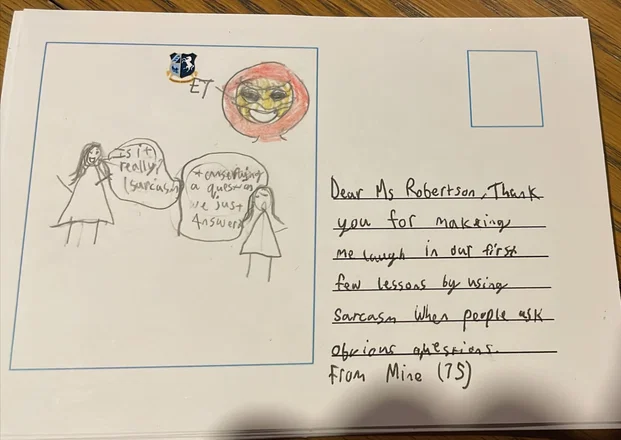 ET
Is it
really?
(sarcasm)
*answering
a question
we just
Answered
Dear Ms Robertson, Thank
you for makeing
me laugh in our first
few lessons by using
Sarcasm When people ask
obvious questions.
From Mine (7S)